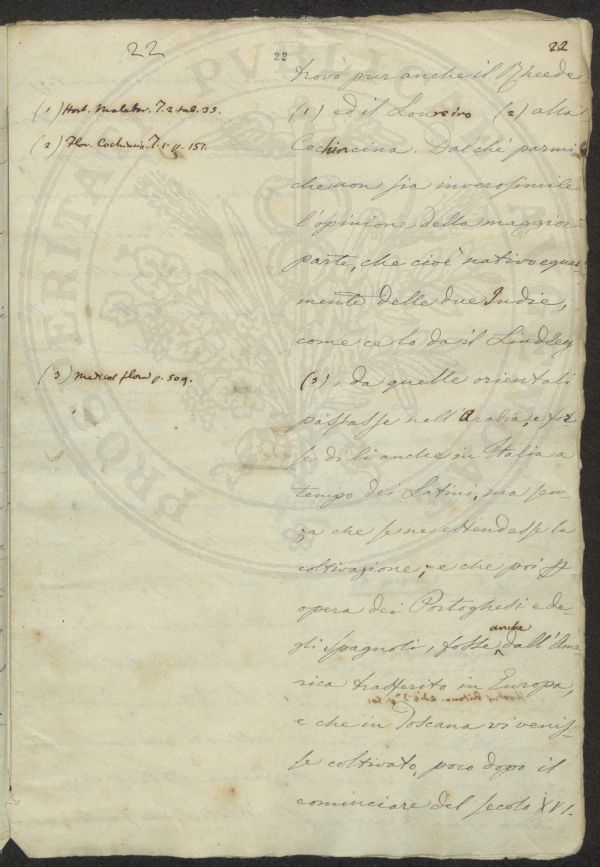 22 22 22
trovò pur anche il Rheede
(1) Hort. Malabar. T. 2 tab. 35. (1) ed il Loureiro (2) alla
(2) Flor. Cochinin. T. 1. p. 157. Cochincina. Dal che parmi
che non sia inverosimile
l'opinione della maggior
parte, che cioè nativo egual
mente delle due Indie,
come ce lo dà il Lindley
(3) Medical flora p. 509. (3), da quelle orientali
passasse nell'Arabia, e for
se di lì anche in Italia a
tempo dei Latini, ma sen-
za che se ne estendesse la
coltivazione; e che poi p
opera dei Portoghesi e de-
gli Spagnoli, fosse anche dall'Ame
rica trasferito in Europa,
e che in Toscana vi venis-
se coltivato, poco dopo il
cominciare del secolo XVI.
PVBLICAE
PROSPERITATI